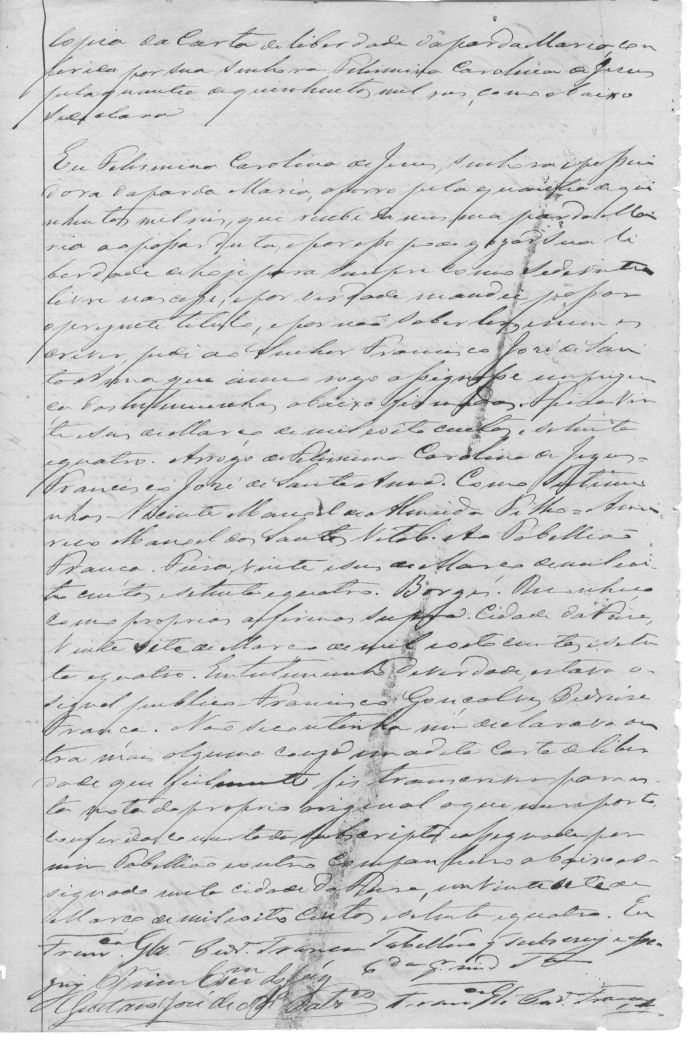 Copia da Carta de liberdade da parda Maria, con
ferida por sua senhora Felismina Carolina de Jesus
pela quantia de quinhentos mil reis, como abaixo
se declara
Eu Felismina Carolina de Jesus, senhora e possui
dora da parda Maria, a forro pela quantia de qui
nhentos mil reis, que recebi da mesma parda Ma
ria ao passar desta, e por isso pode gozar sua li
berdade de hoje para sempre como se de ventre
livre nascesse, e por verdade mandei passar
o presente titulo, e por não saber ler, e nem es
crever, pedi ao Senhor Francisco José de San
ta Anna que a meu rogo assignasse em presen
ça das testemunhas abaixo firmadas. Feira Vin
te seis de Março de mil oito centos e setenta
e quatro. Arrôgo de Felismina Carolina de Jesus =
Francisco José de Santa Anna. Como testemu
nhas = Vicente Manoel de Almeida Filho = Ame
rico Manoel dos Santos Vital. Ao Tabellião
Franca. Feira, vinte e seis de Março de mil oi
to centos e setenta e quatro. Borges. Reconheço
como proprias as firmas supra. Cidade da Feira,
Vinte sete de Março de mil oito centos e seten
ta e quatro. Em testemunho de verdade, estava o
signal publico = Francisco Gonçalves Pedreira
Franca. Não se continha nem declarava ou
tra mais alguma couza em a dita Carta de liber
dade que fielmente fis transcrever para es
ta nota da propria original a que me reporto
conferida, concertada, subscripta e assignada por
mim Tabellião e outro companheiro abaixo as
signado nesta cidade da Feira, em Vinte sete de
Março de mil oito centos e setenta e quatro. Eu
Fran.co Glz. Ped.ra Franca Tabellião q subscrevi e assi
gnei
Gustavo José de Fran.co Glz Ped.ra Franca